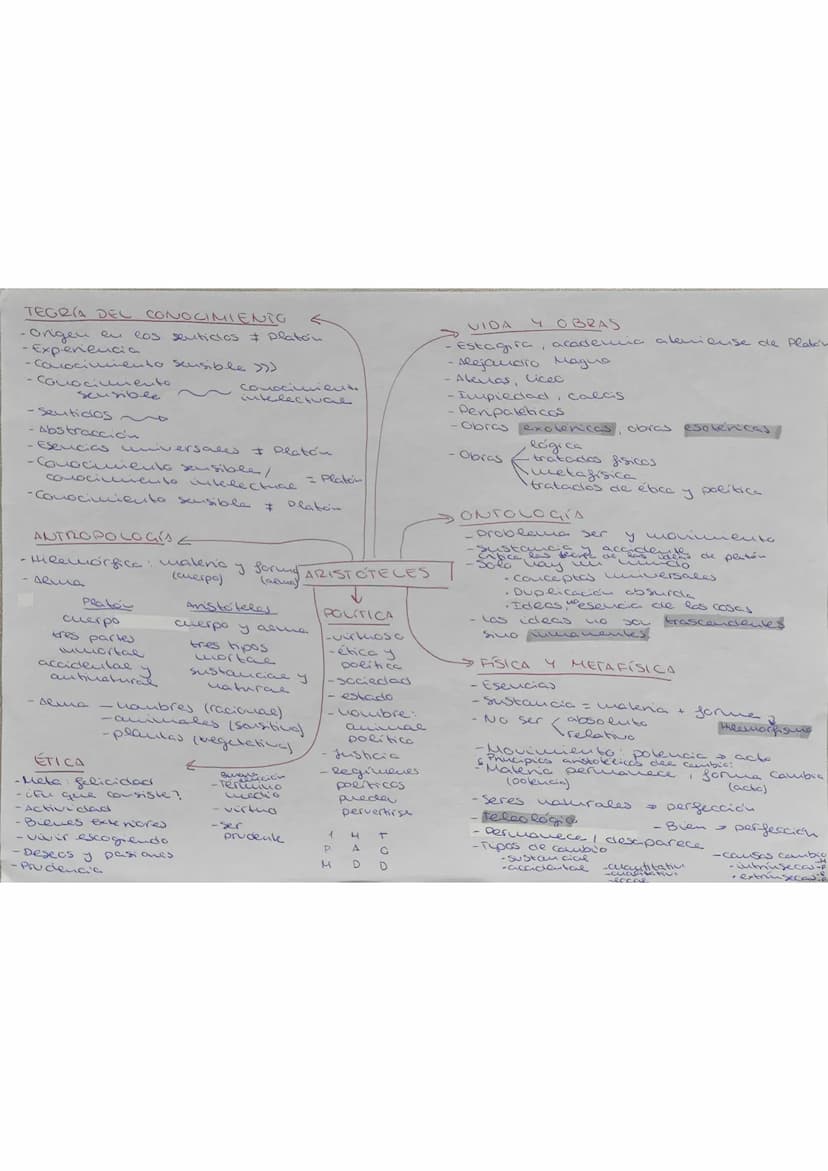 TEORÍA DEL CONOCIMIENTO
- Origen en los sentidos ≠ Platón
- Experiencia
- Conocimiento sensible >>>
- Conocimiento sensible ~~~ conocimiento intelectual
- Sentidos ~~→
- Abstracción
- Esencias universales ≠ Platón
- Conocimiento sensible /
conocimiento intelectual = Platón
- Conocimiento sensible ≠ Platón
ANTROPOLOGÍA
- Hilemórfica: materia y forma
(cuerpo) (alma)
- Alma
Platón Aristóteles
cuerpo cuerpo y alma
tres partes tres tipos
inmortal mortal
accidental y sustancial y
antinatural natural
- Alma — hombres (racional)
- animales (sensitiva)
- plantas (vegetativa)
ÉTICA
- Meta: felicidad
- ¿En que consiste?
- Actividad
- Bienes exteriores
- Vivir escogiendo
- Deseos y pasiones
- Prudencia
- Término
medio
- virtud
- ser
prudente
ARISTÓTELES
POLÍTICA
- virtuoso
- ética y
política
- sociedad
- estado
- hombre:
animal
político
- Justicia
- Regímenes
políticos
pueden
pervertirse
1 M T
P A O
M D D
VIDA Y OBRAS
- Estagira, academia ateniense de Platón
- Alejandro Magno
- Atenas, Liceo
- Impiedad, Calcis
- Peripatéticos
- Obras exotéricas, obras esotéricas
- Obras
lógica
tratados físicos
metafísica
tratados de ética y política
ONTOLOGÍA
- Problema ser y movimiento
- Sustancia y accidente
Crítica las teoría de las ideas de platón
- Solo hay un mundo
· Conceptos universales
· Duplicación absurda
· Ideas, no esencia de las cosas
- Las ideas no son trascendentes
sino inmanentes
FÍSICA Y METAFÍSICA
- Esencias
- Sustancia = materia + forma
Hilemorfismo
- No ser
absoluto
relativo
- Movimiento: potencia → acto
Principios aristotélicos del cambio:
- Materia permanece, forma cambia
(potencia) (acto)
- Seres naturales → perfección
- Teleológico
- Bien → perfección
- Permanece / desaparece
- Tipos de cambio
- sustancial
- accidental
- cuantitativo
- cualitativo
- local
- causas cambio
· intrínsecas
· extrínsecas